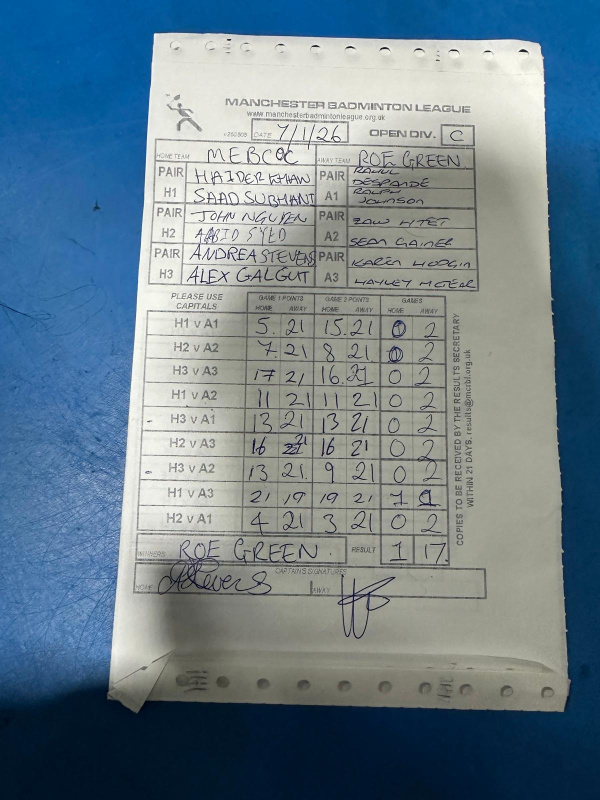 MANCHESTER BADMINTON LEAGUE
www.manchesterbadmintonleague.org.uk
V250805 DATE 7/1/26 OPEN DIV. C
HOME TEAM MEBCOC AWAY TEAM ROE GREEN
PAIR H1 HAIDER KHAN SAAD SUBHANI PAIR A1 RAHUL DESPANDE RALPH JOHNSON
PAIR H2 JOHN NGUYEN ABID SYED PAIR A2 ZAW HTET SEAN GAINER
PAIR H3 ANDREA STEVENS ALEX GALGUT PAIR A3 KAREN HODGIN HAYLEY
PLEASE USE CAPITALS GAME 1 POINTS GAME 2 POINTS GAMES
HOME AWAY HOME AWAY HOME AWAY
H1 v A1 5 21 15 21 0 2
H2 v A2 7 21 8 21 0 2
H3 v A3 17 21 16 21 0 2
H1 v A2 11 21 11 21 0 2
H3 v A1 13 21 13 21 0 2
H2 v A3 16 21 16 21 0 2
H3 v A2 13 21 9 21 0 2
H1 v A3 21 19 19 21 1 1
H2 v A1 4 21 3 21 0 2
WINNERS ROE GREEN. RESULT 1 17
CAPTAINS SIGNATURES
HOME AStevens AWAY
COPIES TO BE RECEIVED BY THE RESULTS SECRETARY
WITHIN 21 DAYS. results@mcrbl.org.uk